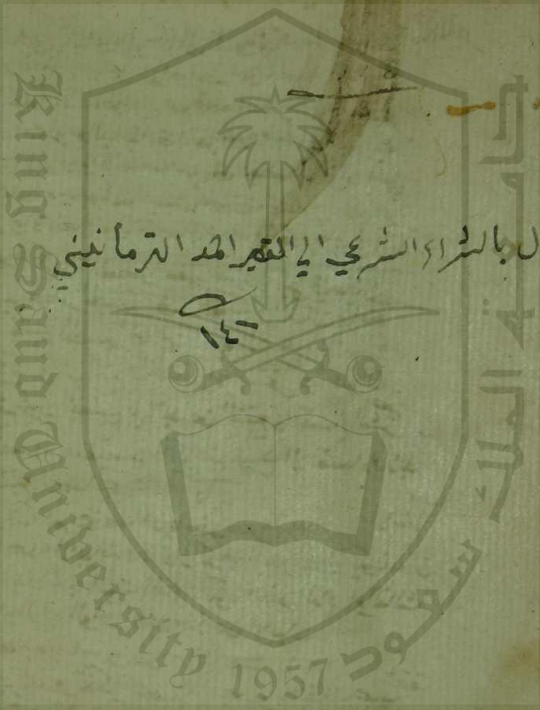 ل بالشراء الشرعي الي الفقير احمد الترمانيني
King Saud University 1957
جامعة الملك سعود